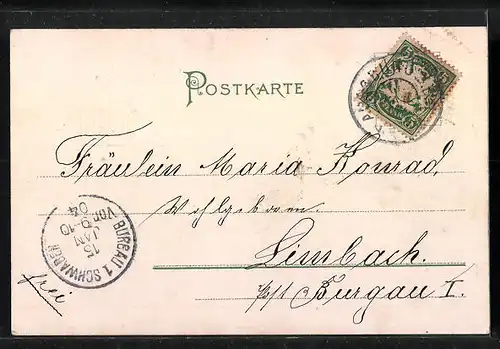 POSTKARTE
Fräulein Maria Konrad,
Wohlgeboren.
Limbach.
Burgau I.
frei
BUREAU 1 SCHWABEN
15
JAN
04
VOR. 9-10
5